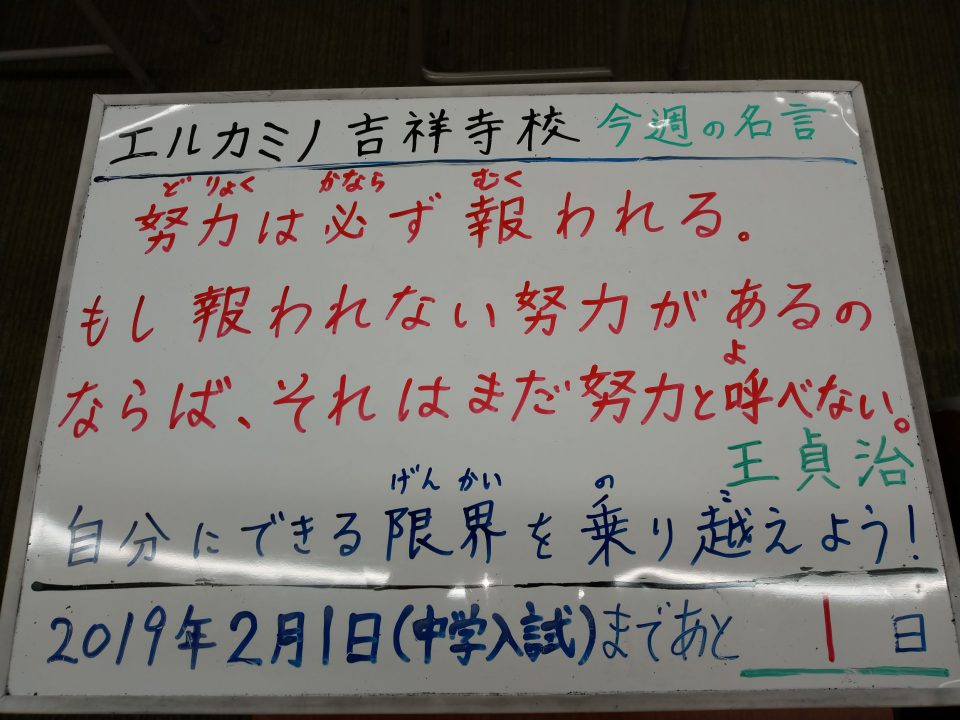 エルカミノ吉祥寺校 今週の名言
どりょく かなら むく
努力は必ず報われる。
もし報われない努力があるの
よ
ならば、それはまだ努力と呼べない。
王貞治
げんかい の こ
自分にできる限界を乗り越えよう!
2019年2月1日(中学入試)まであと1日